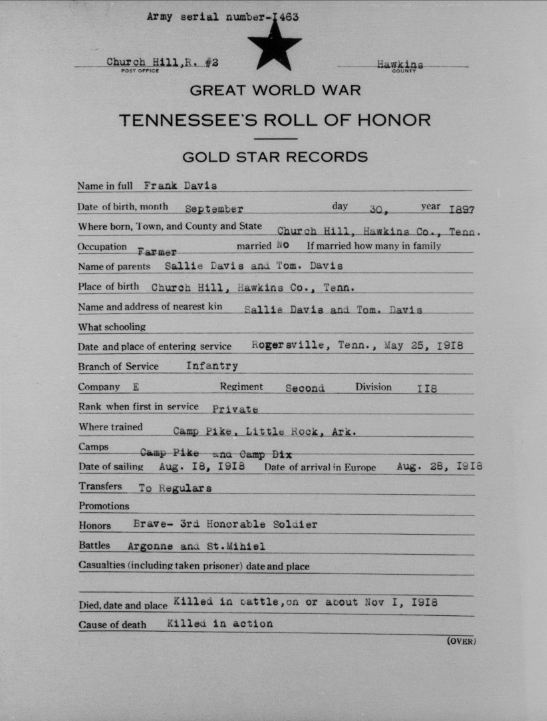 Army serial number-I463
Church Hill,R. #2 Hawkins
POST OFFICE COUNTY
GREAT WORLD WAR
TENNESSEE'S ROLL OF HONOR
GOLD STAR RECORDS
Name in full Frank Davis
Date of birth, month September day 30, year I897
Where born, Town, and County and State Church Hill, Hawkins Co., Tenn.
Occupation Farmer married No If married how many in family
Name of parents Sallie Davis and Tom. Davis
Place of birth Church Hill, Hawkins Co., Tenn.
Name and address of nearest kin Sallie Davis and Tom. Davis
What schooling
Date and place of entering service Rogersville, Tenn., May 25, I9I8
Branch of Service Infantry
Company E Regiment Second Division II8
Rank when first in service Private
Where trained Camp Pike, Little Rock, Ark.
Camps Camp Pike and Camp Dix
Date of sailing Aug. I8, I9I8 Date of arrival in Europe Aug. 28, I9I8
Transfers To Regulars
Promotions
Honors Brave- 3rd Honorable Soldier
Battles Argonne and St.Mihiel
Casualties (including taken prisoner) date and place
Died, date and place Killed in battle,on or about Nov I, I9I8
Cause of death Killed in action
(OVER)